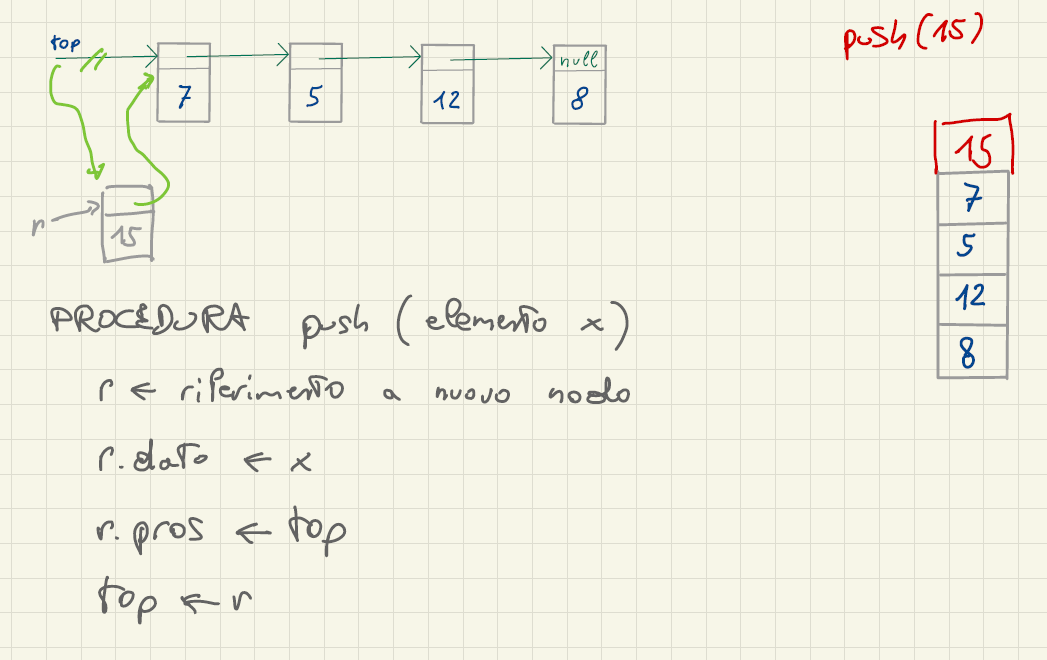 top
push (15)
null
7
5
12
8
15
7
r
15
5
12
8
PROCEDURA push (elemento x)
r ← riferimento a nuovo nodo
r.dato ← x
r.pros ← top
top ← r